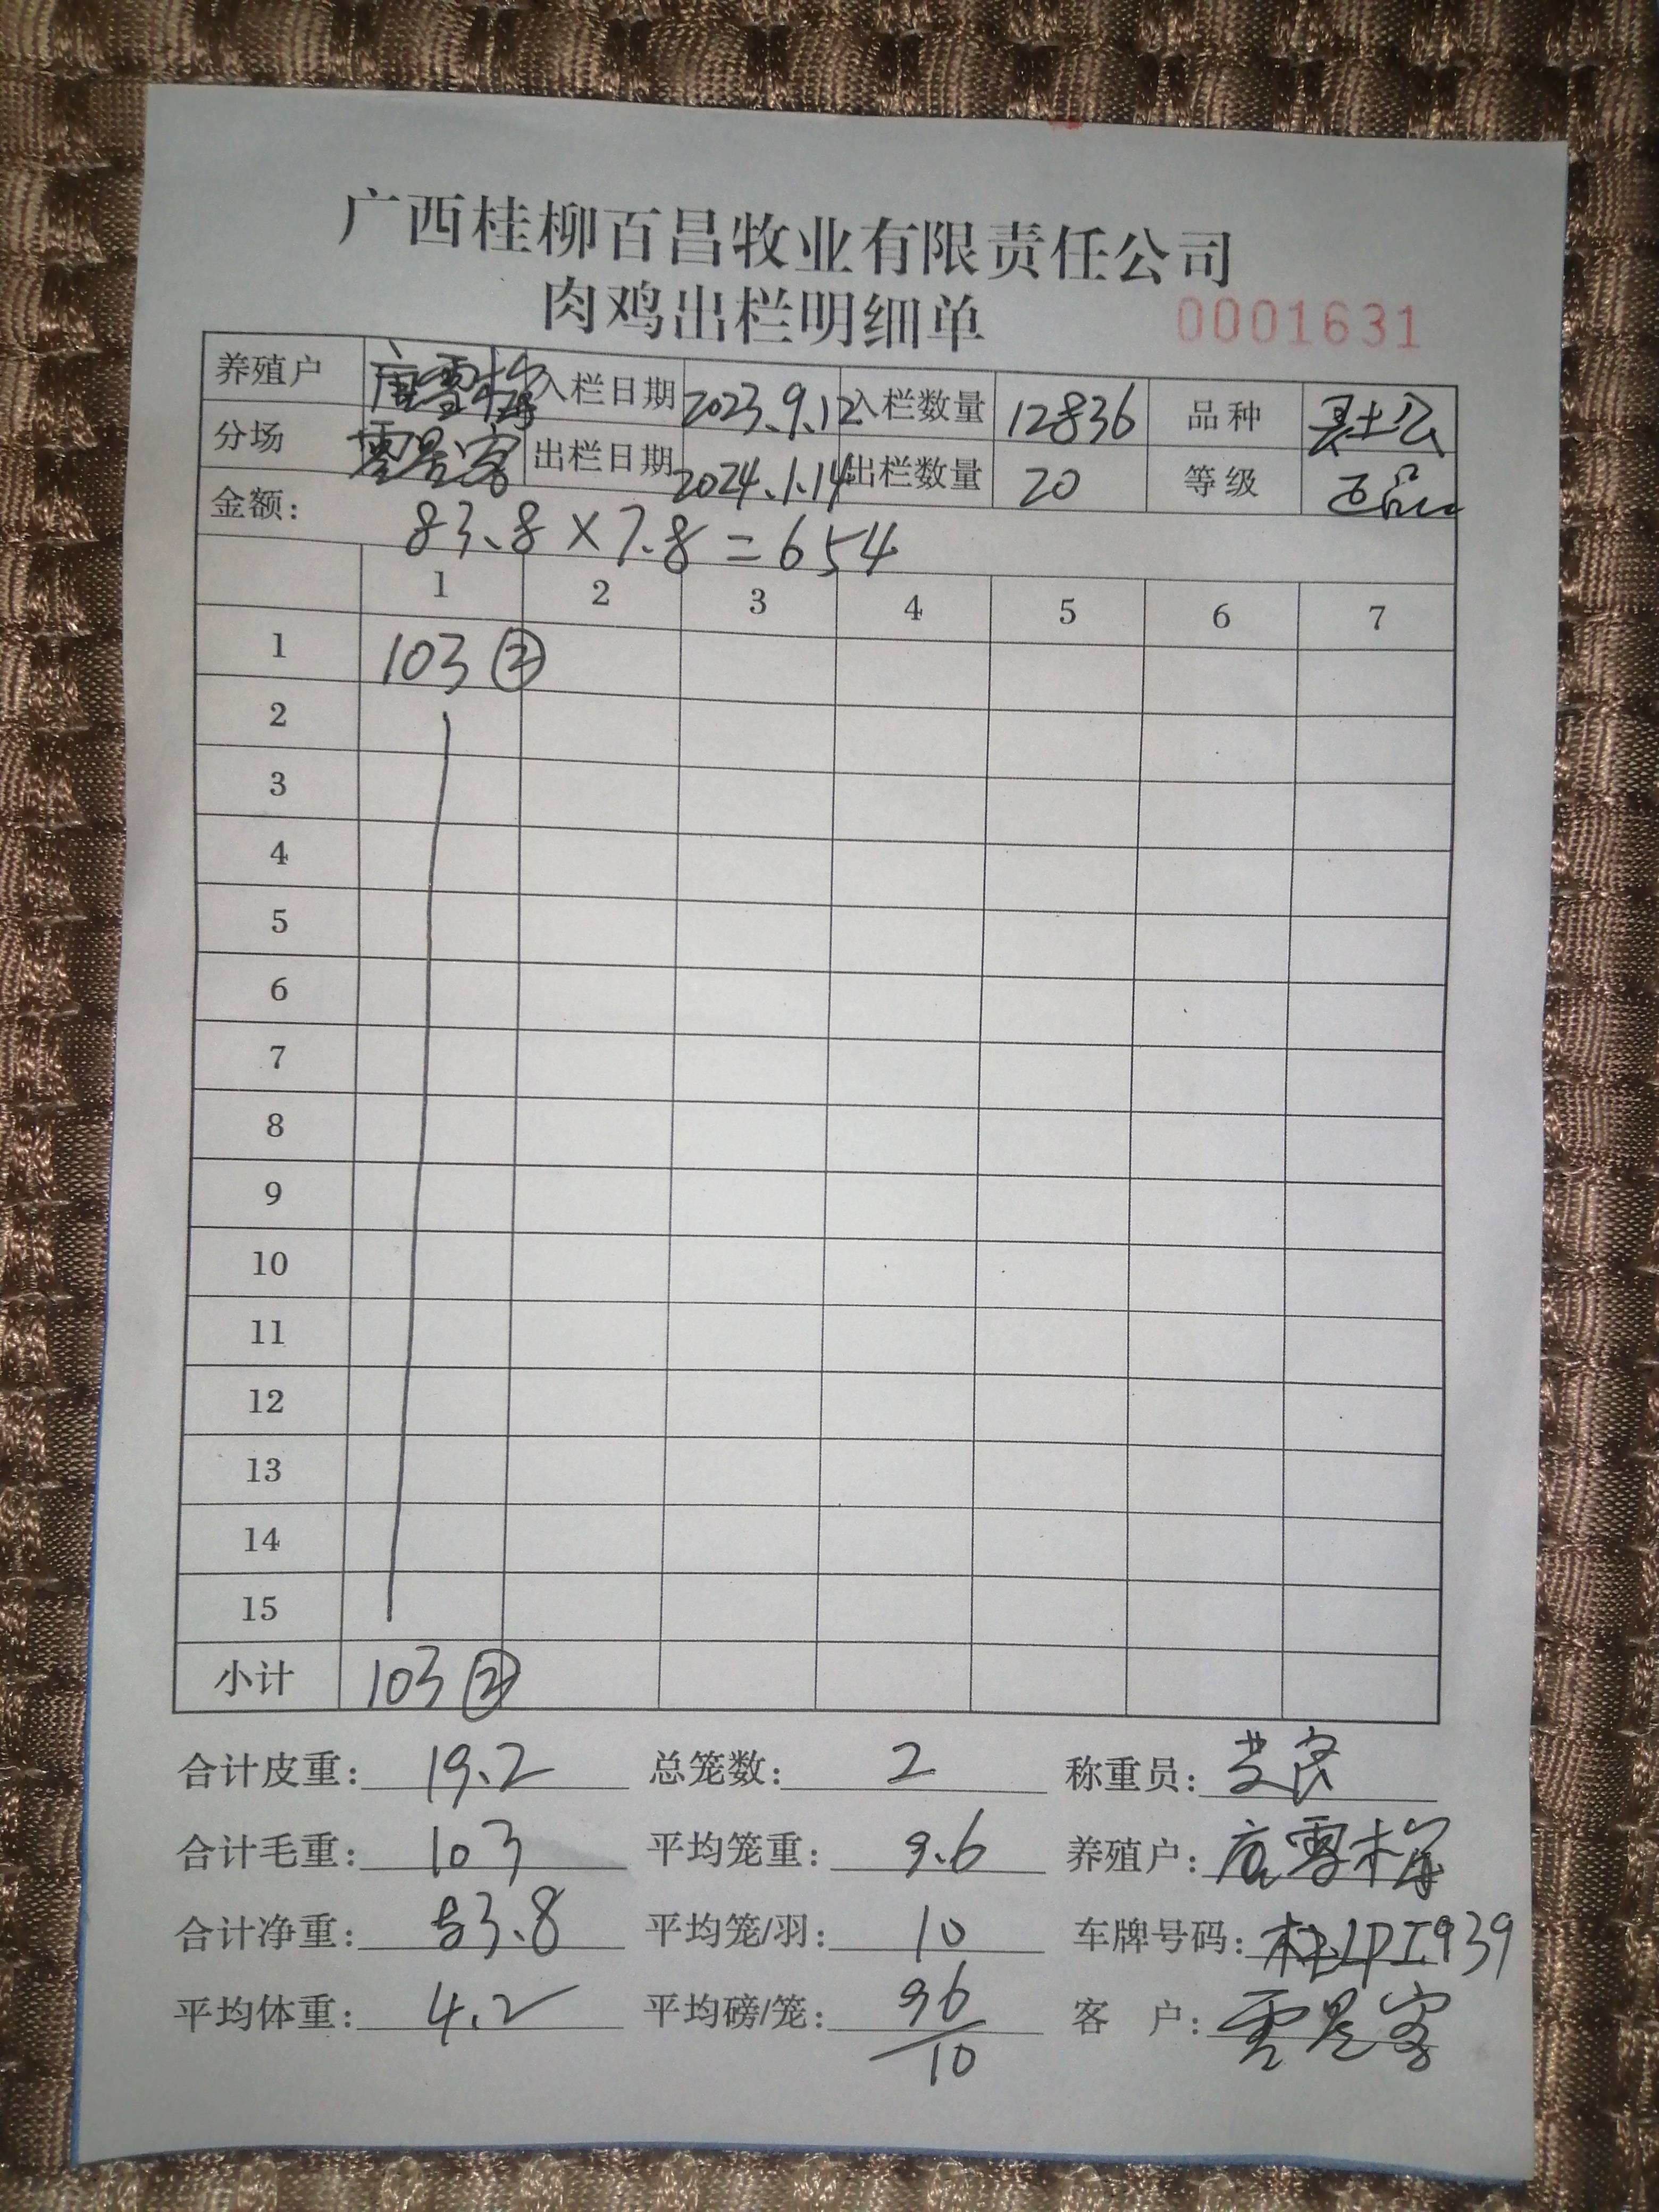 广西桂柳百昌牧业有限责任公司
肉鸡出栏明细单 0001631
养殖户 唐雪梅 入栏日期 2023.9.12 入栏数量 12836 品种
分场 出栏日期 2024.1.14 出栏数量 20 等级
金额: 83.8×7.8=654
1 2 3 4 5 6 7
1 103 ②
2
3
4
5
6
7
8
9
10
11
12
13
14
15
小计 103 ②
合计皮重: 19.2 总笼数: 2 称重员:
合计毛重: 103 平均笼重: 9.6 养殖户: 唐雪梅
合计净重: 83.8 平均笼/羽: 10 车牌号码:
平均体重: 4.2 平均磅/笼: 96/10 客 户: